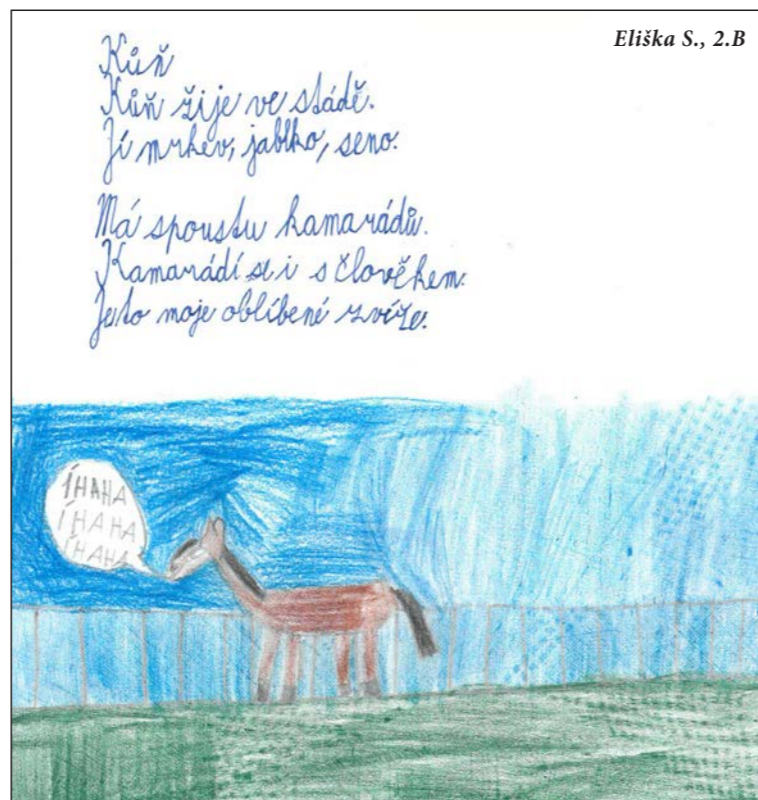 Eliška S., 2.B
Kůň
Kůň žije ve stádě.
Jí mrkev, jablko, seno.
Má spoustu kamarádů.
Kamarádí se i s člověkem.
Je to moje oblíbené zvíře.
ÍHAHA
ÍHAHA
ÍHAHA